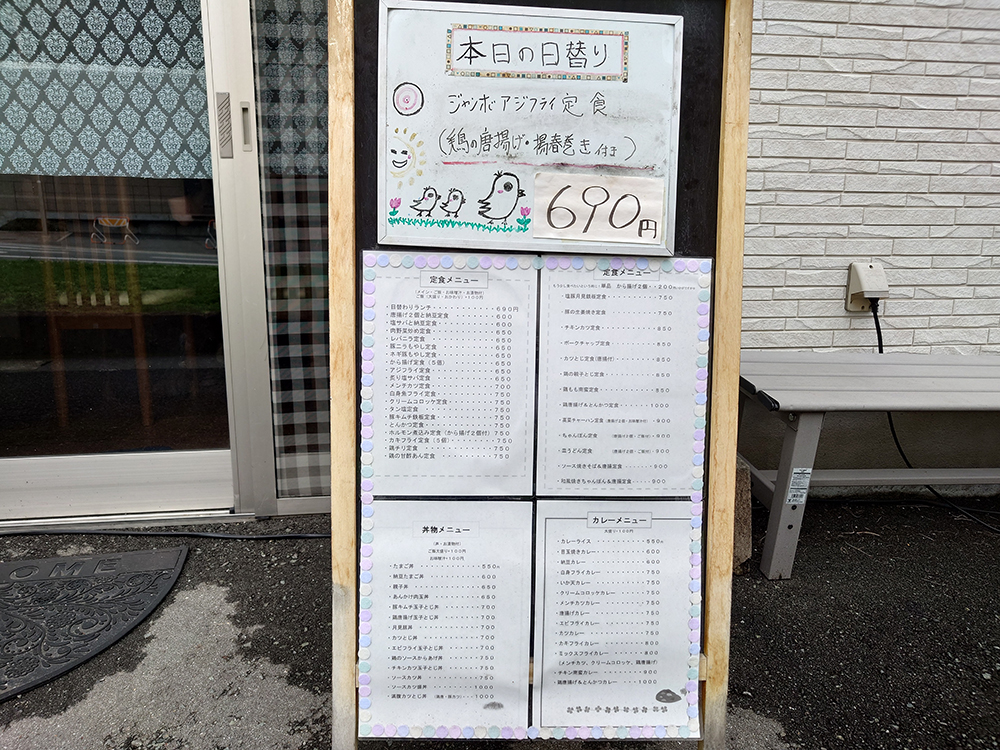 本日の日替り
ジャンボアジフライ定食
(鶏の唐揚げ・揚春巻き付き)
690円
定食メニュー
(メイン・ご飯・お味噌汁・お漬物付)
ご飯(大盛り・おかわり)+100円
・日替わりランチ・・・・・・・・690円
・唐揚げ2個と納豆定食・・・・・・600
・塩サバと納豆定食・・・・・・・・600
・肉野菜炒め定食・・・・・・・・・650
・レバニラ定食・・・・・・・・・・650
・豚ニラもやし定食・・・・・・・・650
・ネギ豚もやし定食・・・・・・・・650
・から揚げ定食(5個)・・・・・・650
・アジフライ定食・・・・・・・・・650
・炙り塩サバ定食・・・・・・・・・750
・メンチカツ定食・・・・・・・・・700
・白身魚フライ定食・・・・・・・・750
・クリームコロッケ定食・・・・・・750
・タン塩定食・・・・・・・・・・・750
・豚キムチ鉄板定食・・・・・・・・750
・とんかつ定食・・・・・・・・・・750
・ホルモン煮込み定食(から揚げ2個付)750
・カキフライ定食(5個)・・・・・750
・鶏チリ定食・・・・・・・・・・・750
・鶏の甘酢あん定食・・・・・・・・750
定食メニュー
単品 から揚げ2個・・+200
・塩豚月見鉄板定食
・豚の生姜焼き定食・・・・・・750
・チキンカツ定食・・・・・・・850
・ポークチャップ定食・・・・・850
・カツとじ定食(唐揚付)・・・・850
・鶏の親子とじ定食・・・・・・850
・鶏もも南蛮定食・・・・・・・850
・鶏唐揚げ&とんかつ定食・・・1000
・高菜チャーハン定食・・900
・ちゃんぽん定食
・皿うどん定食 (唐揚げ2個・ご飯付)・900
・ソース焼きそば&唐揚定食・・・・900
・和風焼きちゃんぽん&唐揚定食・・・900
丼物メニュー
(丼・お漬物付)
ご飯大盛り+100円
お味噌汁+100円
・たまご丼・・・・・・・・550円
・納豆たまご丼・・・・・・600
・親子丼・・・・・・・・・650
・あんかけ肉玉丼・・・・・680
・豚キムチ玉子とじ丼・・・700
・鶏唐揚げ玉子とじ丼・・・700
・月見豚丼・・・・・・・・700
・カツとじ丼・・・・・・・700
・エビフライ玉子とじ丼・・700
・鶏のソースからあげ丼・・750
・チキンカツ玉子とじ丼・・750
・ソースカツ丼・・・・・・750
・ソースカツ盛丼・・・・・1000
・満腹カツとじ丼・・・1000
カレーメニュー
大盛り+100円
・カレーライス・・・・・・・550円
・目玉焼きカレー・・・・・・600
・納豆カレー・・・・・・・・600
・白身フライカレー・・・・・750
・いか天カレー・・・・・・・750
・クリームコロッケカレー・・750
・メンチカツカレー・・・・・750
・唐揚げカレー・・・・・・・750
・エビフライカレー・・・・・750
・カツカレー・・・・・・・・750
・カキフライカレー・・・・・800
・ミックスフライカレー・・・800
(メンチカツ、クリームコロッケ、鶏唐揚げ)
・チキン南蛮カレー・・・・・900
・鶏唐揚げ&とんかつカレー・・・1000
OME